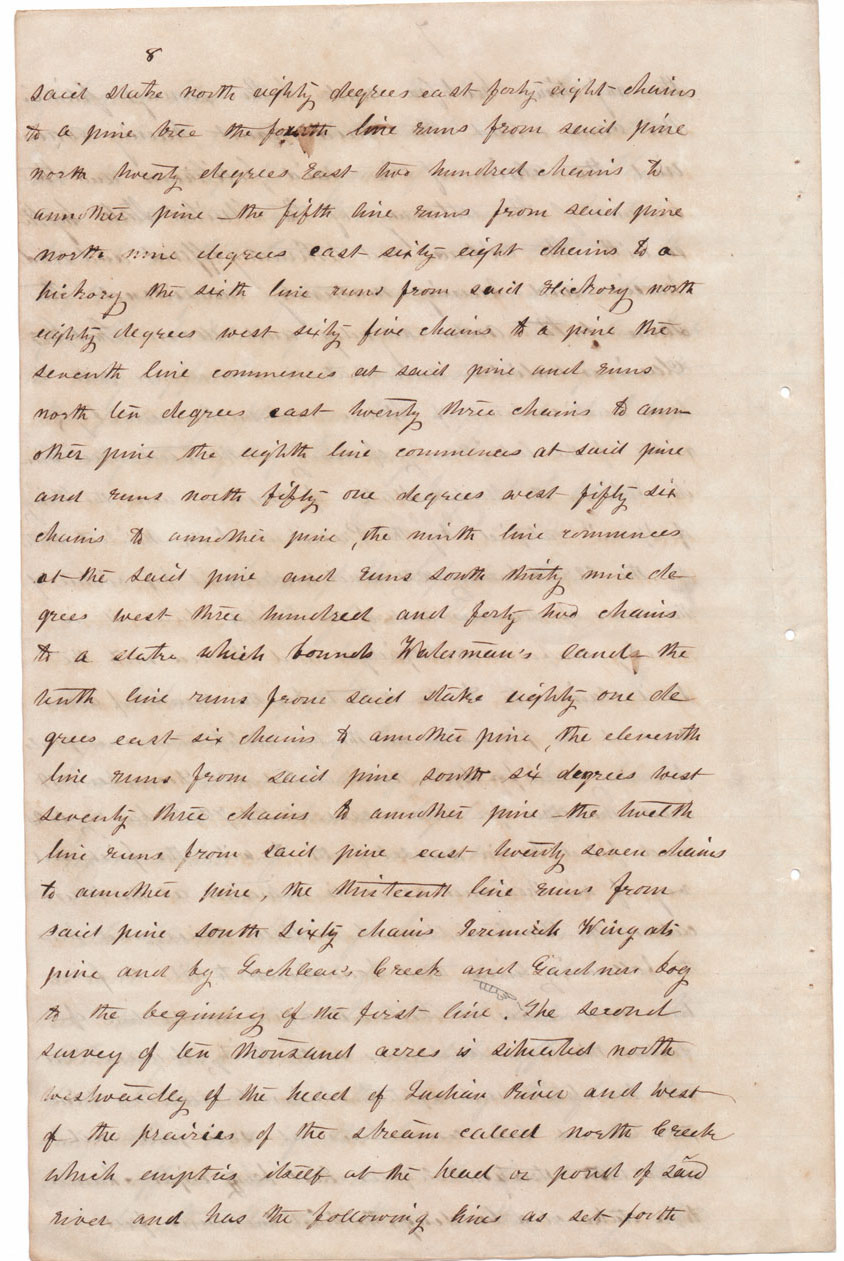 8
said stake north eighty degrees east forty eight chains
to a pine tree the fourth line runs from said pine
north twenty degrees East two hundred chains to
annother pine - the fifth line runs from said pine
north nine degrees east sixty eight chains to a
hickory the sixth line runs from said Hickory north
eighty degrees west sixty five chains to a pine the
seventh line commences at said pine and runs
north ten degrees east twenty three chains to ann-
other pine the eighth line commences at said pine
and runs north fifty one degrees west fifty six
chains to annother pine, the ninth line commences
at the said pine and runs south thirty nine de
grees west three hundred and forty two chains
to a stake which bounds Waterman's lands the
tenth line runs from said stake eighty one de
grees east six chains to annother pine, the eleventh
line runs from said pine south six degrees west
seventy three chains to annother pine - the twelth
line runs from said pine east twenty seven chains
to annother pine, the thirteenth line runs from
said pine south sixty chains Jeremiah Wingats
pine and by Lochlear's Creek and Gardners bog
to the beginning of the first line. The second
survey of ten thousand acres is situated north
westwardly of the head of Indian River and west
of the prairies of the stream called north Creek
which empties itself at the head or pond of said
river and has the following lines as set forth